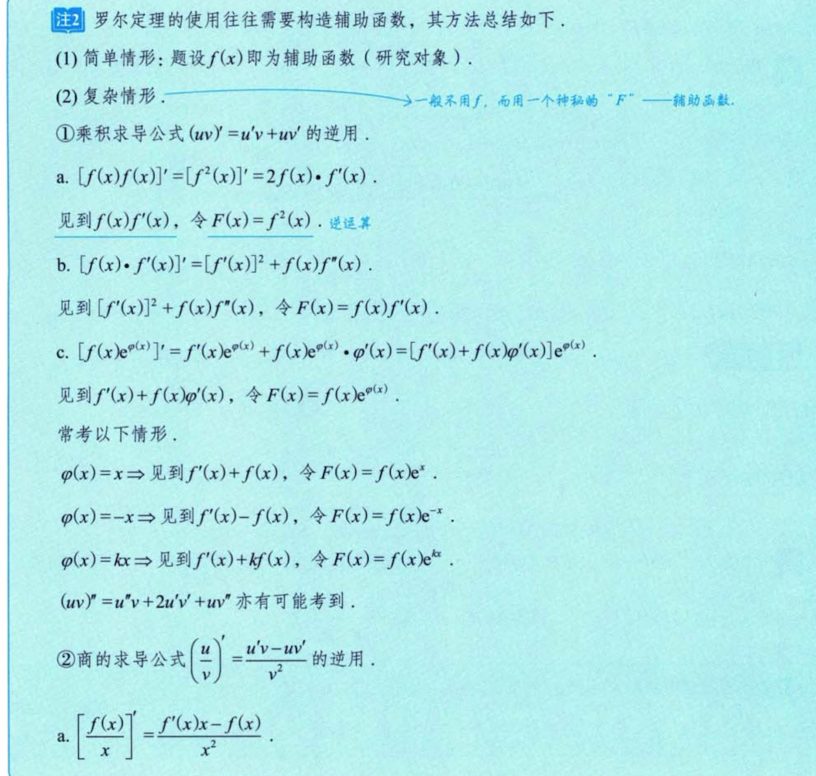 注2 罗尔定理的使用往往需要构造辅助函数，其方法总结如下．
(1) 简单情形：题设f(x)即为辅助函数（研究对象）．
(2) 复杂情形．一般不用f，而用一个神秘的“F”——辅助函数．
①乘积求导公式(uv)′=u′v+uv′的逆用．
a. [f(x)f(x)]′=[f²(x)]′=2f(x)•f′(x)．
见到f(x)f′(x)，令F(x)=f²(x)．逆运算
b. [f(x)•f′(x)]′=[f′(x)]²+f(x)f″(x)．
见到[f′(x)]²+f(x)f″(x)，令F(x)=f(x)f′(x)．
c. [f(x)e^{φ(x)}]′=f′(x)e^{φ(x)}+f(x)e^{φ(x)}•φ′(x)=[f′(x)+f(x)φ′(x)]e^{φ(x)}．
见到f′(x)+f(x)φ′(x)，令F(x)=f(x)e^{φ(x)}．
常考以下情形．
φ(x)=x⇒见到f′(x)+f(x)，令F(x)=f(x)e^{x}．
φ(x)=−x⇒见到f′(x)−f(x)，令F(x)=f(x)e^{−x}．
φ(x)=kx⇒见到f′(x)+kf(x)，令F(x)=f(x)e^{kx}．
(uv)″=u″v+2u′v′+uv″亦有可能考到．
②商的求导公式(u/v)′=(u′v−uv′)/v²的逆用．
a. [f(x)/x]′=(f′(x)x−f(x))/x²．